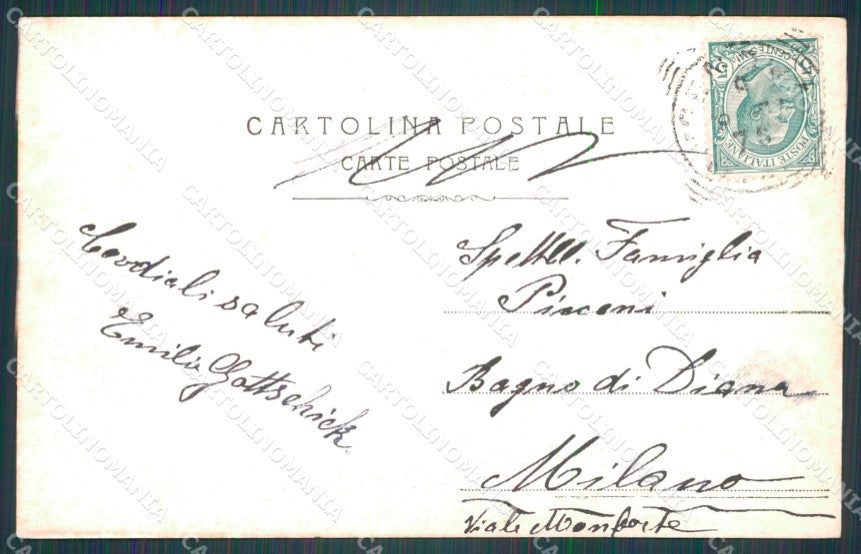 CARTOLINA POSTALE
CARTE POSTALE
POSTE ITALIANE
CENTESIMI
Cordiali saluti
Emilio Gottschick
Spettll. Famiglia
Bagno di Diana
Milano
Viale Monforte
CARTOLINOMANIA